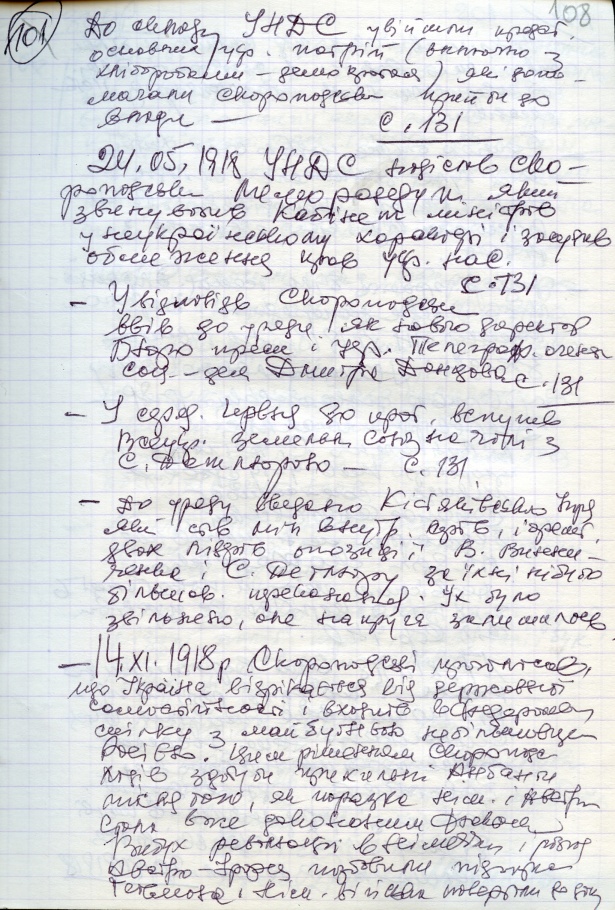 108
101
До складу УНДС увійшли предст.
основних укр. партій (включно з
хліборобами – демократами) які допо-
магали Скоропадському прийти до
влади — С. 131
24.05.1918 УНДС подіслав Ско-
ропадському меморандум, який
звинуватив Кабінет міністрів
у неукраїнському характері і
обмеження прав укр. нас.
С. 131
– У відповідь Скоропадськ
ввів до уряду, як нового директор
Бюро преси і укр. Телеграф. агенц
соц.-дем Дмитра Донцова С. 131
– У серед. червня до вступив
Всеукр. земельн. союз на чолі з
С. Петлюрою — С. 131
– До уряду введено Кістяківського Ігор
який став мін внутр. справ, і
двох лідерів опозиції В. Винни-
ченка і С. Петлюру за їхні нібито
більшов. переконання. Їх було
звільнено, але напруга залишилась
– 14.XI.1918р Скоропадський проголосив,
що Україна відрікається від державної
самостійності і входить в федеративну
спілку з майбутньою небільшовицьк
Росією. Цим рішенням Скоропадс
хотів здобути прихильність Антанти
після того, як поразка нім. і Австрії
стала вже доконаним фактом
Вибух революції в Німеччині, і розпад
Австро-Угорщ позбавили підтримки
Гетьмана, і нім. війська повертали до дому